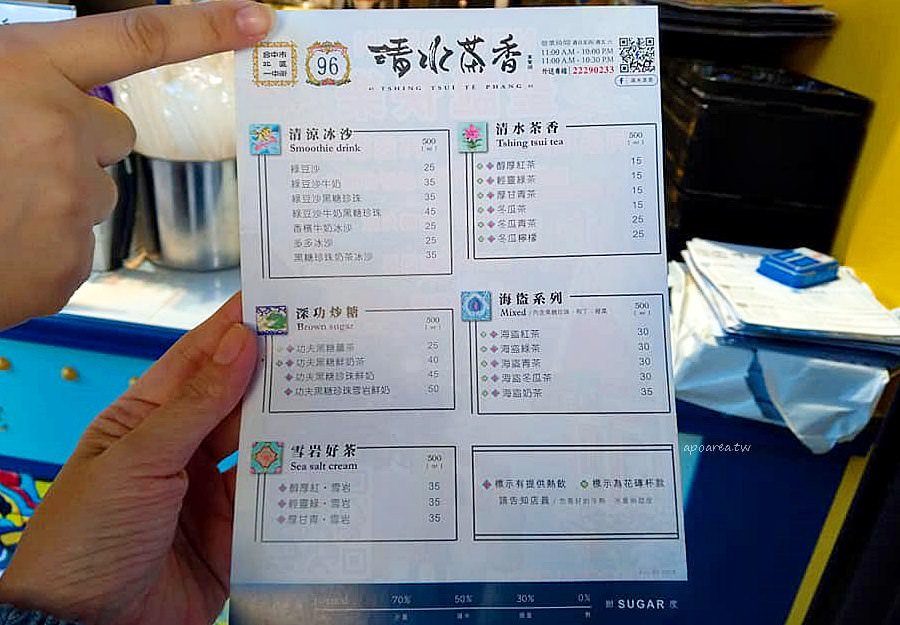 台中市
北區
一中街
96
清水茶香
TSHING TSUI TÊ PHANG
11:00 A.M - 10:00 P.M
11:00 A.M - 10:30 P.M
外送專線 22290233
清涼冰沙
Smoothie drink
500
(ml)
綠豆沙 25
綠豆沙牛奶 35
綠豆沙黑糖珍珠 35
綠豆沙牛奶黑糖珍珠 45
香檳牛奶冰沙 25
多多冰沙 25
黑糖珍珠奶茶冰沙 35
清水茶香
Tshing tsui tea
500
(ml)
醇厚紅茶 15
輕靈綠茶 15
厚甘青茶 15
冬瓜茶 15
冬瓜青茶 25
冬瓜檸檬 25
深功炒糖
Brown sugar
500
(ml)
功夫黑糖薑茶 25
功夫黑糖鮮奶茶 40
功夫黑糖珍珠鮮奶 45
功夫黑糖珍珠雪岩鮮奶 50
海盜系列
Mixed
500
(ml)
海盜紅茶 30
海盜綠茶 30
海盜青茶 30
海盜冬瓜茶 30
海盜奶茶 35
雪岩好茶
Sea salt cream
500
(ml)
醇厚紅・雪岩 35
輕靈綠・雪岩 35
厚甘青・雪岩 35
標示有提供熱飲 標示為花磚杯款
請告知店員
70% 50% 30% 0%
甜 SUGAR 度
apoarea.tw